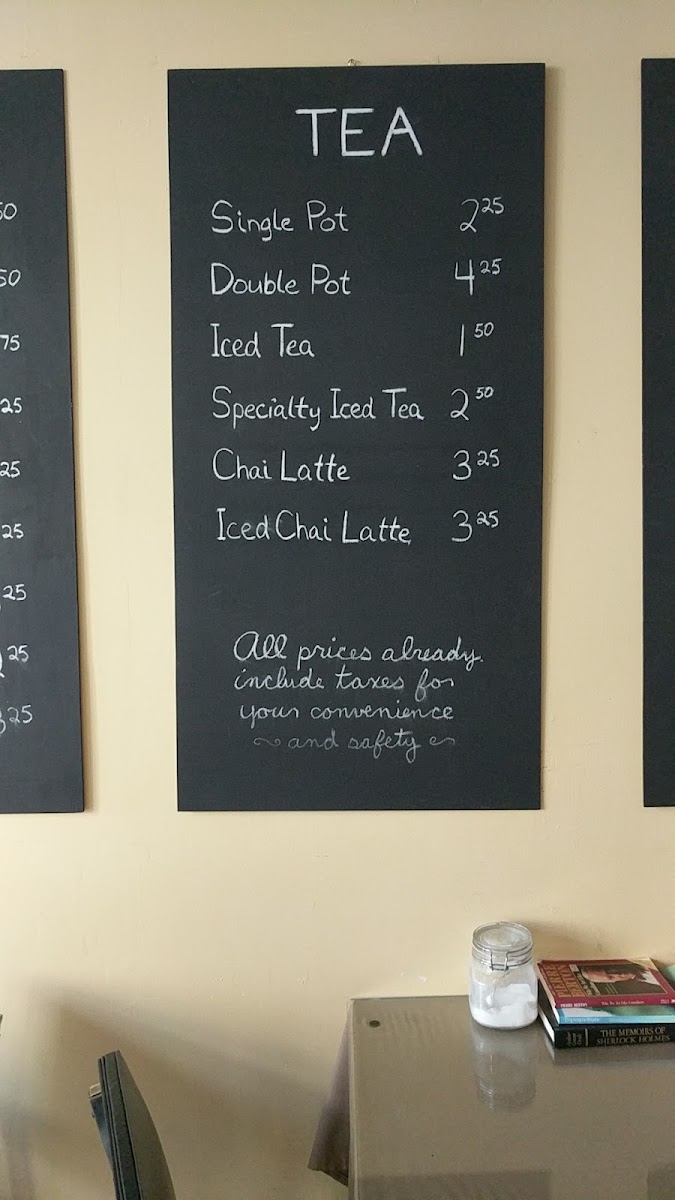 TEA
Single Pot 2 25
Double Pot 4 25
Iced Tea 1 50
Specialty Iced Tea 2 50
Chai Latte 3 25
Iced Chai Latte 3 25
All prices already
include taxes for
your convenience
and safety
50
50
75
25
25
25
25
25
325
THE MEMOIRS OF
SHERLOCK HOLMES